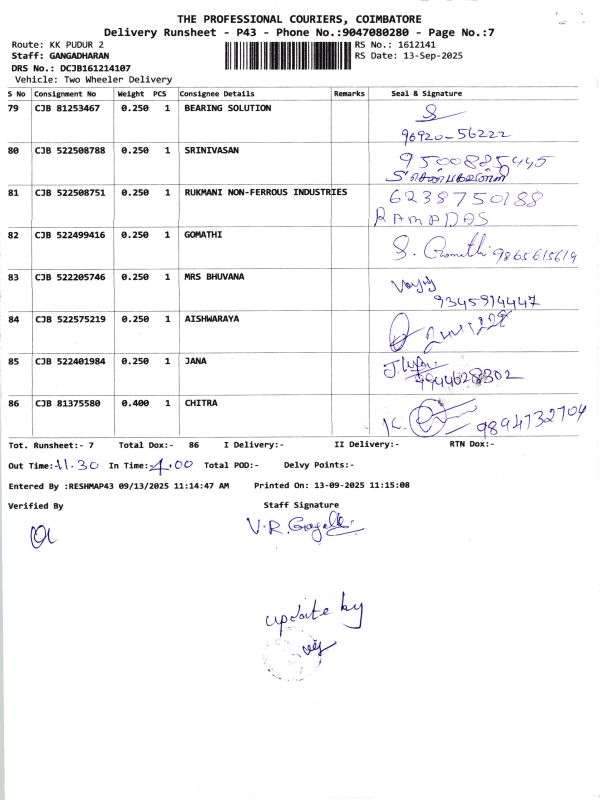 THE PROFESSIONAL COURIERS, COIMBATORE
Delivery Runsheet - P43 - Phone No.:9047080280 - Page No.:7
Route: KK PUDUR 2 RS No.: 1612141
Staff: GANGADHARAN RS Date: 13-Sep-2025
DRS No.: DCJB161214107
Vehicle: Two Wheeler Delivery
S No Consignment No Weight PCS Consignee Details Remarks Seal & Signature
79 CJB 81253467 0.250 1 BEARING SOLUTION
90920-56222
80 CJB 522508788 0.250 1 SRINIVASAN 9500885445
81 CJB 522508751 0.250 1 RUKMANI NON-FERROUS INDUSTRIES 6238750188
RAMADAS
82 CJB 522499416 0.250 1 GOMATHI S. Gomathi 9865615619
83 CJB 522205746 0.250 1 MRS BHUVANA
9345914447
84 CJB 522575219 0.250 1 AISHWARAYA
85 CJB 522401984 0.250 1 JANA
9944628302
86 CJB 81375580 0.400 1 CHITRA K. 9894732704
Tot. Runsheet:- 7 Total Dox:- 86 I Delivery:- II Delivery:- RTN Dox:-
Out Time:-11.30 In Time:-4.00 Total POD:- Delvy Points:-
Entered By :RESHMAP43 09/13/2025 11:14:47 AM Printed On: 13-09-2025 11:15:08
Verified By Staff Signature
update by